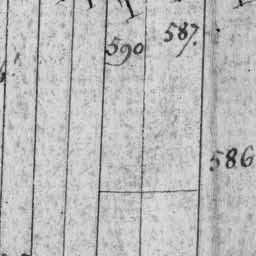 587.
590
586